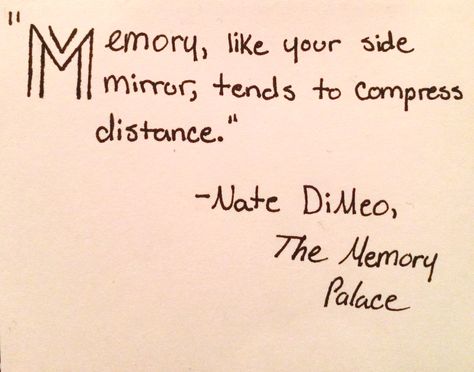 "Memory, like your side
mirror, tends to compress
distance."
-Nate DiMeo,
The Memory
Palace